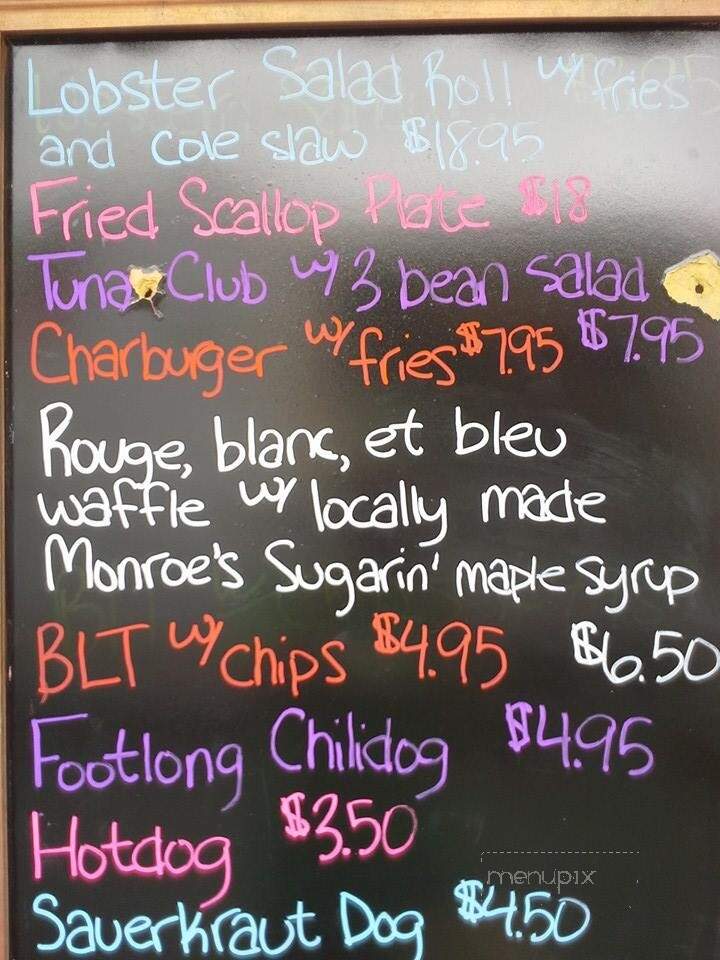 Lobster Salad Roll w/ fries
and cole slaw $18.95
Fried Scallop Plate $18
Tuna Club w/ 3 bean salad
$7.95
Charburger w/ fries $7.95
Rouge, blanc, et bleu
waffle w/ locally made
Monroe's Sugarin' maple syrup
$6.50
BLT w/ chips $4.95
Footlong Chilidog $4.95
Hotdog $3.50
menupix
Sauerkraut Dog $4.50